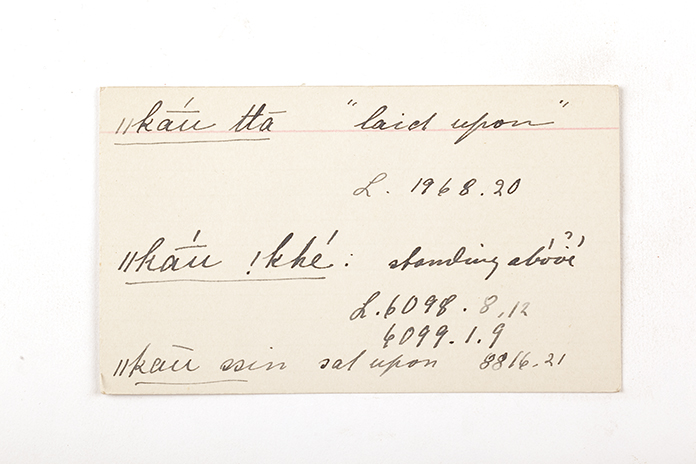 ǁkā́u ttā "laid upon"
L. 1968.20
ǁkā́u ǃkhé: standing above?
L.6098.8,12
6099.1.9
ǁkāu ssin sat upon 8816.21